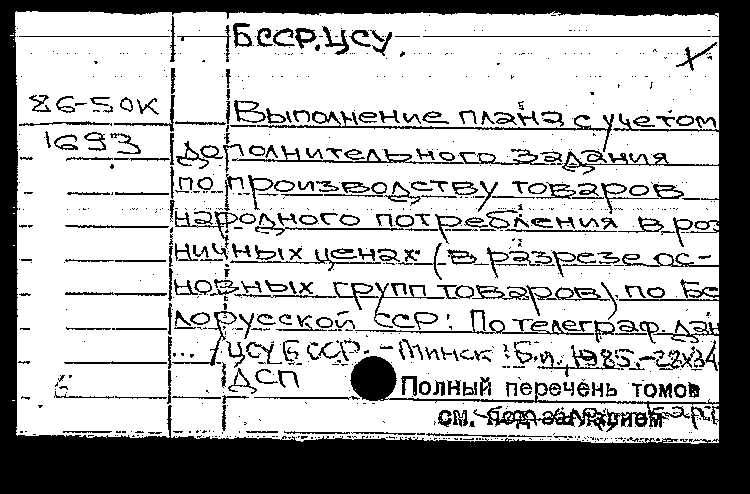 БССР. ЦСУ.
86-50К
Выполнение плана с учетом
1693
дополнительного задания
по производству товаров
народного потребления в роз
ничных ценах (в разрезе ос-
новных групп товаров) по Бе
лорусской ССР: По телеграф. дан
... / ЦСУ БССР. - Минск: Б.и., 1985. - 22х34
ДСП
6
Полный перечень томов
см. под заглавием